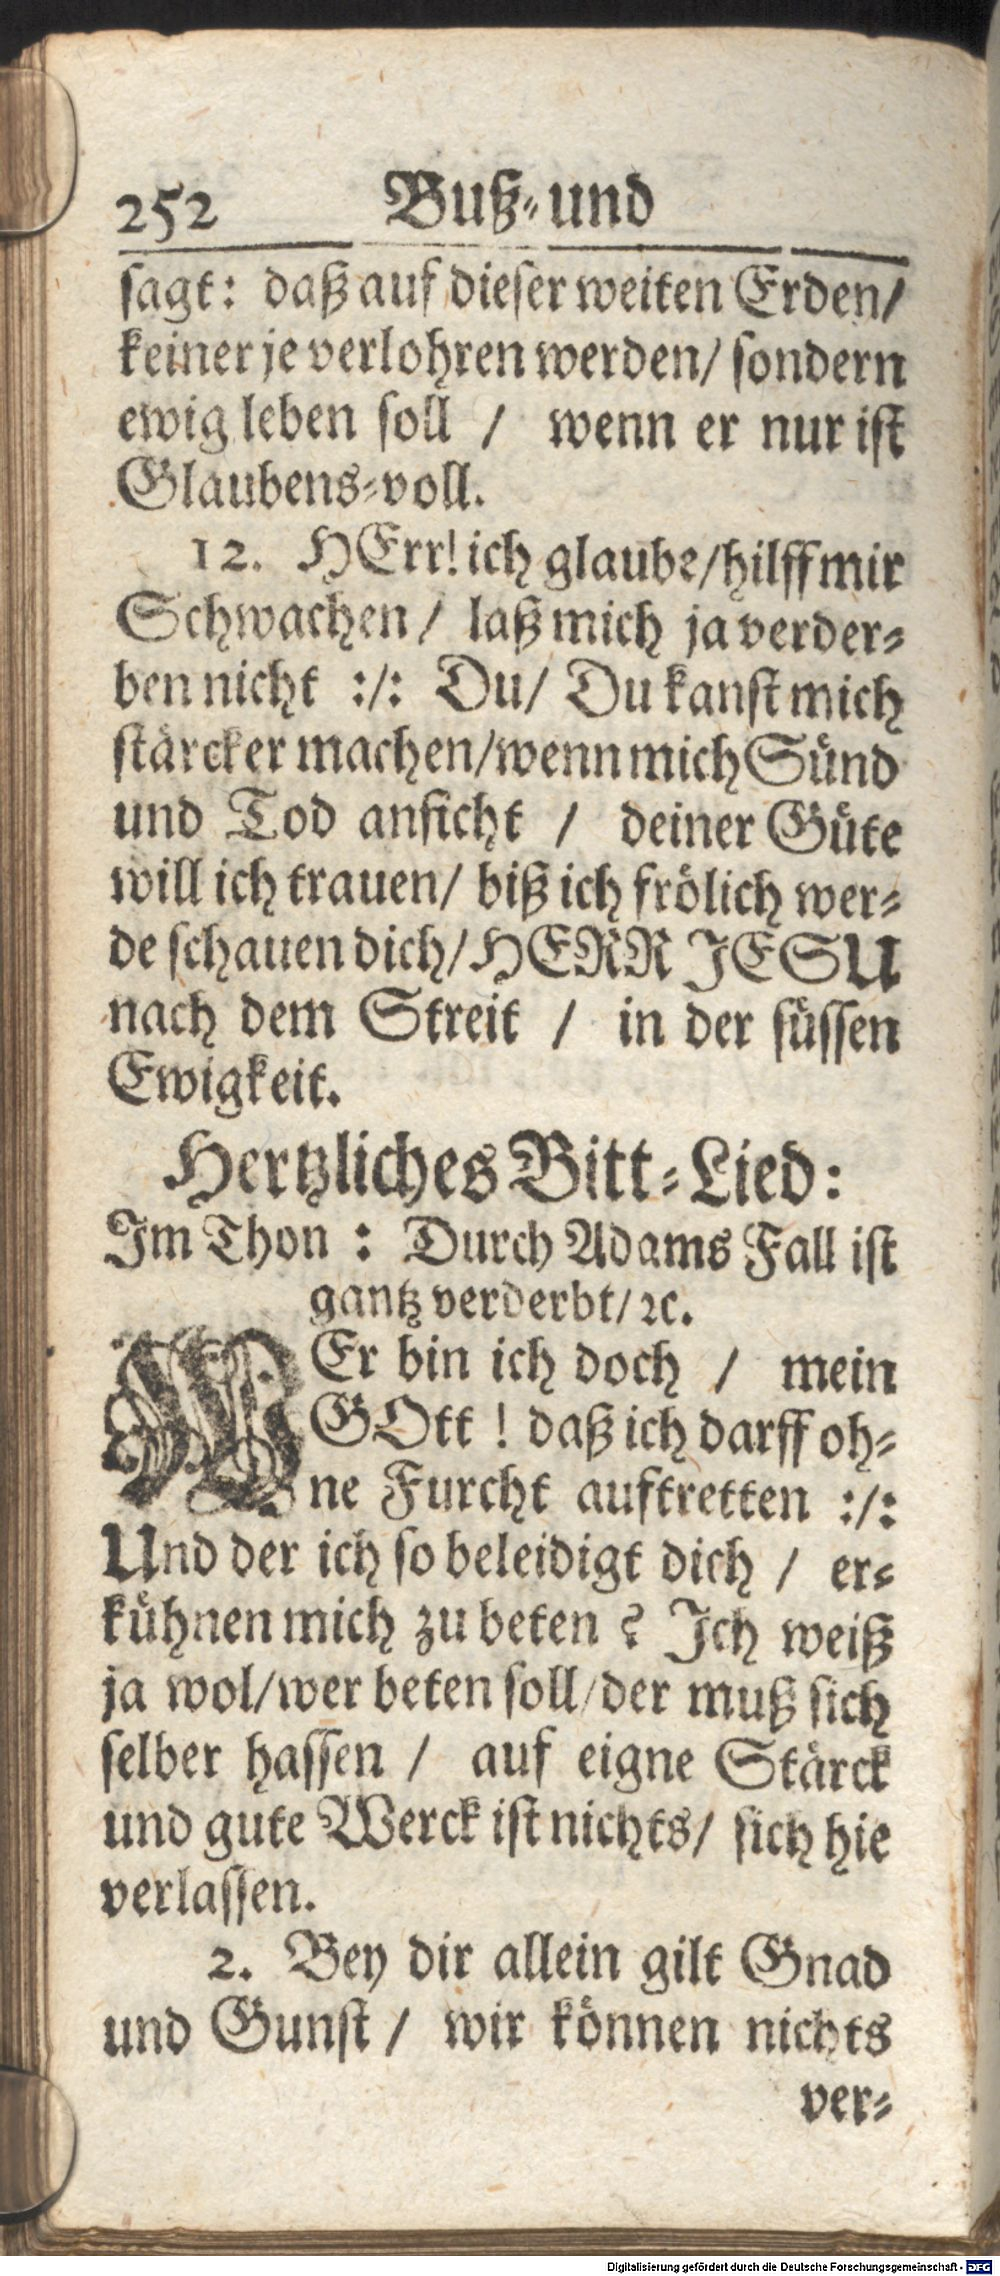 252 Buß-und
sagt: daß auf dieser weiten Erden/
keiner je verlohren werden/ sondern
ewig leben soll / wenn er nur ist
Glaubens-voll.
12. HErr! ich glaube/hilff mir
Schwachen / laß mich ja verder-
ben nicht :/: Du/ Du kanst mich
stärcker machen/wenn mich Sünd
und Tod anficht / deiner Güte
will ich trauen/ biß ich frölich wer-
de schauen dich/HERR JESU
nach dem Streit / in der süssen
Ewigkeit.
Hertzliches Bitt-Lied:
Im Thon : Durch Adams Fall ist
gantz verderbt/ ꝛc.
WEr bin ich doch / mein
GOtt ! daß ich darff oh-
ne Furcht auftretten :/:
Und der ich so beleidigt dich / er-
kühnen mich zu beten ? Ich weiß
ja wol/wer beten soll/der muß sich
selber hassen / auf eigne Stärck
und gute Werck ist nichts/ sich hie
verlassen.
2. Bey dir allein gilt Gnad
und Gunst / wir können nichts
ver-
Digitalisierung gefördert durch die Deutsche Forschungsgemeinschaft - DFG